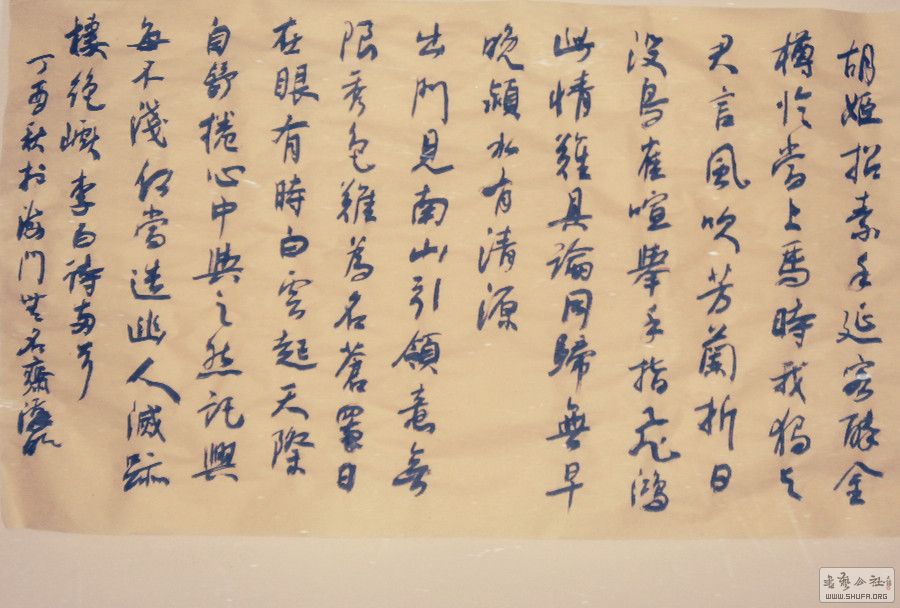 胡姬招素手延客醉金
樽臨當上馬時我獨与
君言風吹芳蘭折日
没鳥雀喧舉手指飛鴻
此情難具論同歸無早
晚潁水有清源
出門見南山引領意無
限秀色難為名蒼翠日
在眼有時白雲起天際
自舒捲心中與之然託興
每不淺何當造幽人滅跡
棲絕巘李白詩兩首
丁酉秋於海門無名齋
書藝公社
WWW.SHUFA.ORG